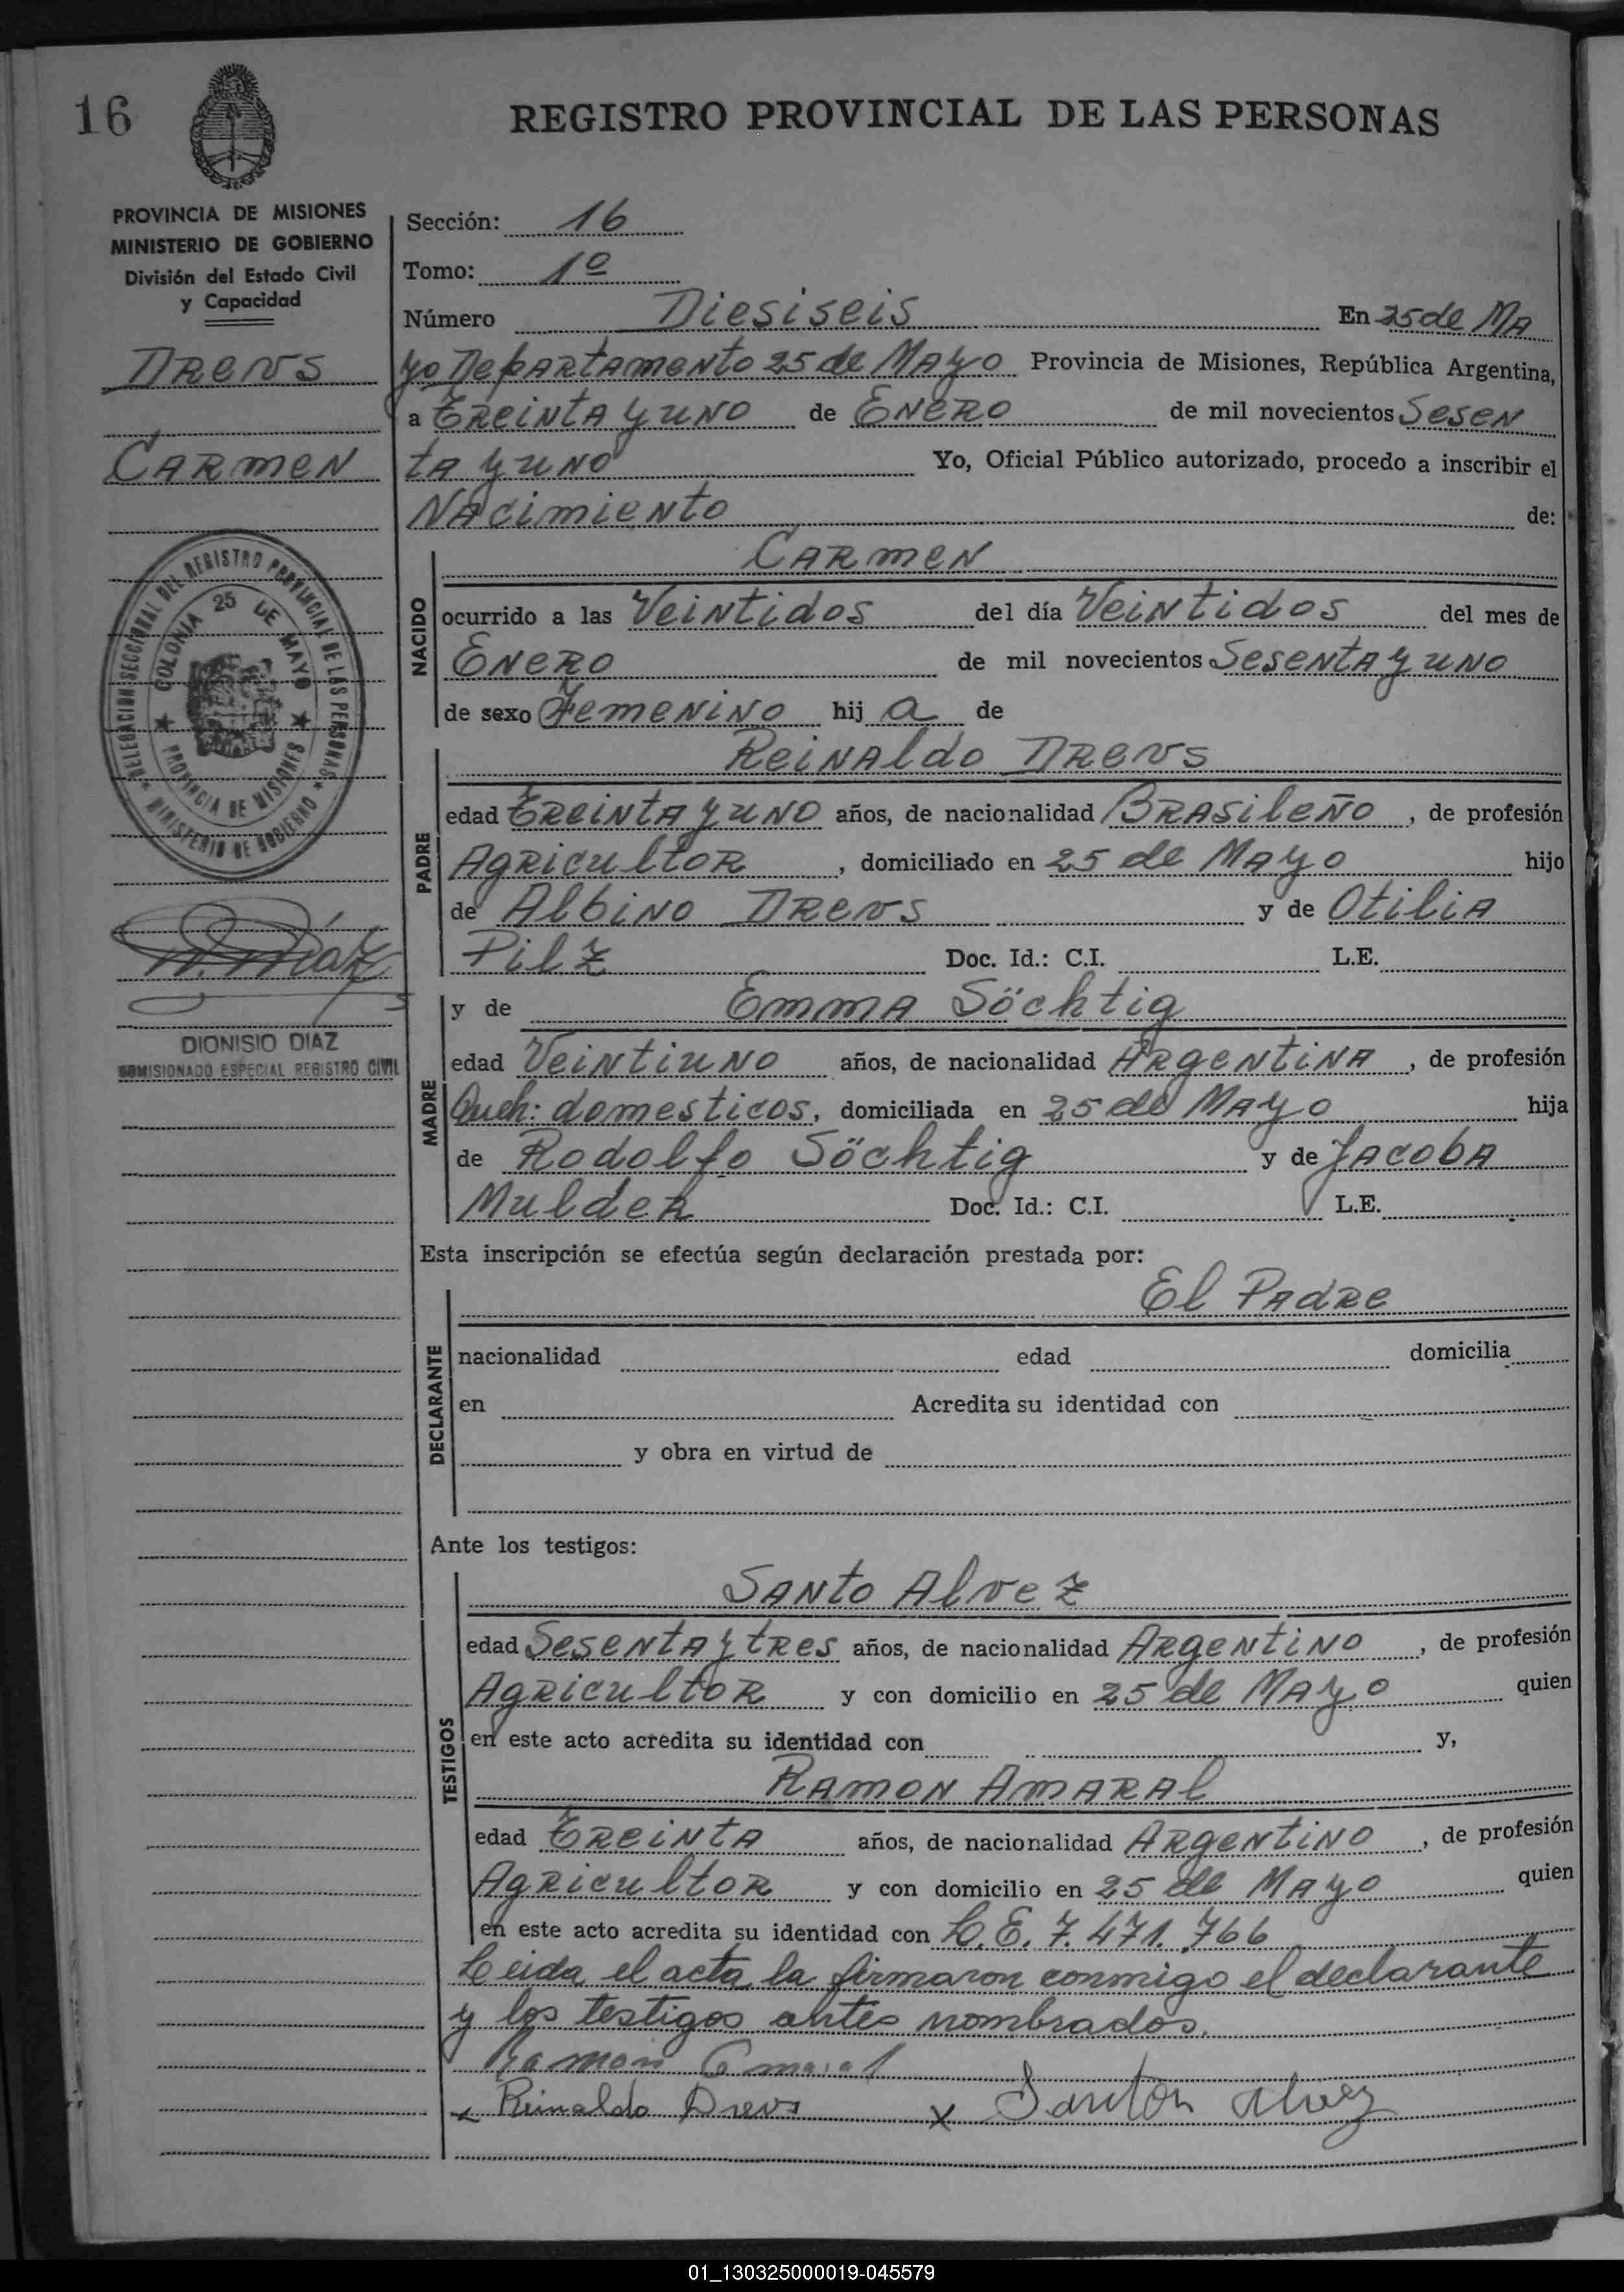 16
REGISTRO PROVINCIAL DE LAS PERSONAS
PROVINCIA DE MISIONES
MINISTERIO DE GOBIERNO
División del Estado Civil
y Capacidad
Drevs
Carmen
DELEGACION SECCIONAL DEL REGISTRO PROVINCIAL DE LAS PERSONAS
MINISTERIO DE GOBIERNO
COLONIA 25 DE MAYO
PROVINCIA DE MISIONES
D. Díaz
DIONISIO DIAZ
COMISIONADO ESPECIAL REGISTRO CIVIL
Sección: 16
Tomo: 1º
Número Diesiseis En 25 de Ma
yo Departamento 25 de Mayo Provincia de Misiones, República Argentina,
a Treinta y uno de Enero de mil novecientos Sesen
ta y uno Yo, Oficial Público autorizado, procedo a inscribir el
Nacimiento de:
NACIDO
Carmen
ocurrido a las Veintidos del día Veintidos del mes de
Enero de mil novecientos Sesenta y uno
de sexo Femenino hij a de
PADRE
Reinaldo Drevs
edad Treinta y uno años, de nacionalidad Brasileño, de profesión
Agricultor, domiciliado en 25 de Mayo hijo
de Albino Drevs y de Otilia
Pilz Doc. Id.: C.I. L.E.
MADRE
y de Emma Söchtig
edad Veintiuno años, de nacionalidad Argentina, de profesión
Queh: domesticos, domiciliada en 25 de Mayo hija
de Rodolfo Söchtig y de Jacoba
Mulder Doc. Id.: C.I. L.E.
Esta inscripción se efectúa según declaración prestada por:
DECLARANTE
El Padre
nacionalidad edad domicilia
en Acredita su identidad con
y obra en virtud de
Ante los testigos:
TESTIGOS
Santo Alvez
edad Sesenta y tres años, de nacionalidad Argentino, de profesión
Agricultor y con domicilio en 25 de Mayo quien
en este acto acredita su identidad con y,
Ramon Amaral
edad Treinta años, de nacionalidad Argentino, de profesión
Agricultor y con domicilio en 25 de Mayo quien
en este acto acredita su identidad con L.E. 7.471.766
Leida el acta la firmaron conmigo el declarante
y los testigos antes nombrados.
Ramon Amaral
x Reinaldo Drevs x Santon Alvez
01_130325000019-045579